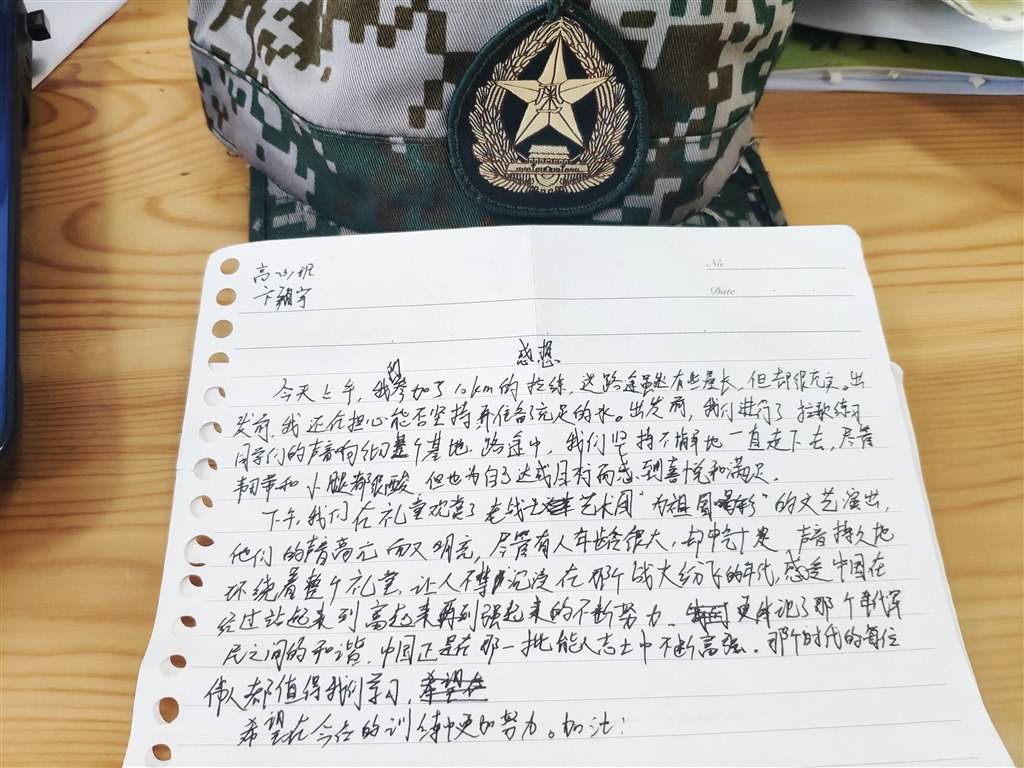 No.
Date
高
感想
今天上午,我们参加了10km的拉练,这路途虽然有些漫长,但却很充实。出
发前,我还在担心能否坚持并准备了充足的水。出发前,我们进行了拉歌练习
同学们的声音响彻整个基地。路途中,我们坚持不懈地一直走下去,尽管
和小腿都很酸,但也为自己达成目标而感到喜悦和满足。
下午,我们在礼堂欢迎了老战士艺术团"为祖国喝彩"的文艺演出,
他们的声音高亢而又明亮,尽管有人年龄很大,却中气十足,声音持久地
环绕着整个礼堂,让人不禁沉浸在那个战火纷飞的年代,感受中国在
经过站起来到富起来再到强起来的不断努力,更体现了那个年代军
民之间的和谐,中国正是在那一批能人志士中不断富强。那个时代的每位
伟人都值得我们学习,
希望在今后的训练中更加努力。加油!